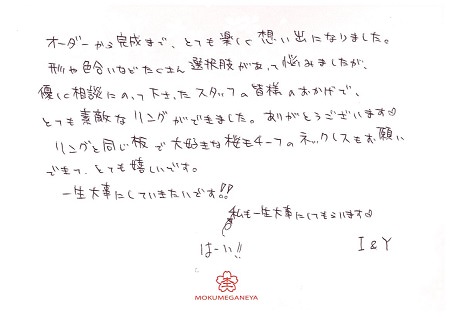 オーダーから完成まで、とても楽しく想い出になりました。
形や色合いなどたくさん選択肢があって悩みましたが、
優しく相談にのって下さったスタッフの皆様のおかげで、
とても素敵なリングができました。ありがとうございます♡
リングと同じ板で大好きな桜モチーフのネックレスもお願い
できて、とても嬉しいです。
一生大事にしていきたいです!!
私も一生大事にしてもらいます♡
はーい!!
I & Y
MOKUMEGANEYA